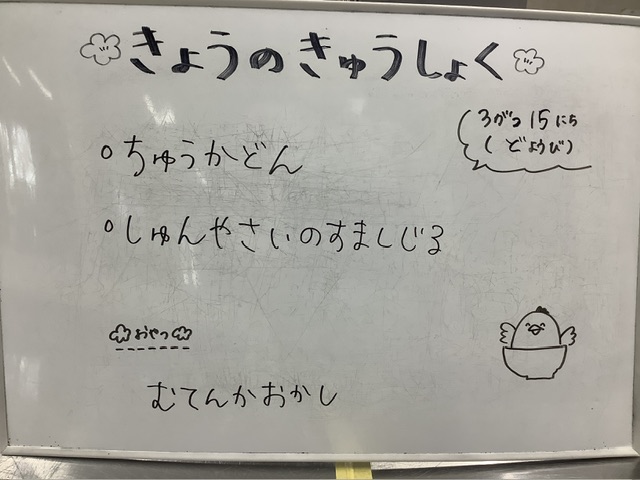 きょうのきゅうしょく
3がつ15にち
(どようび)
○ちゅうかどん
○しゅんやさいのすましじる
おやつ
むてんかおかし